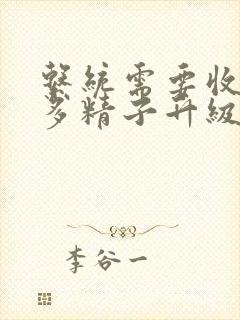 系統需要收
多精子升級
李谷一